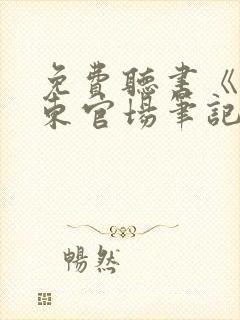 免費聽書《
東官場筆記
暢然